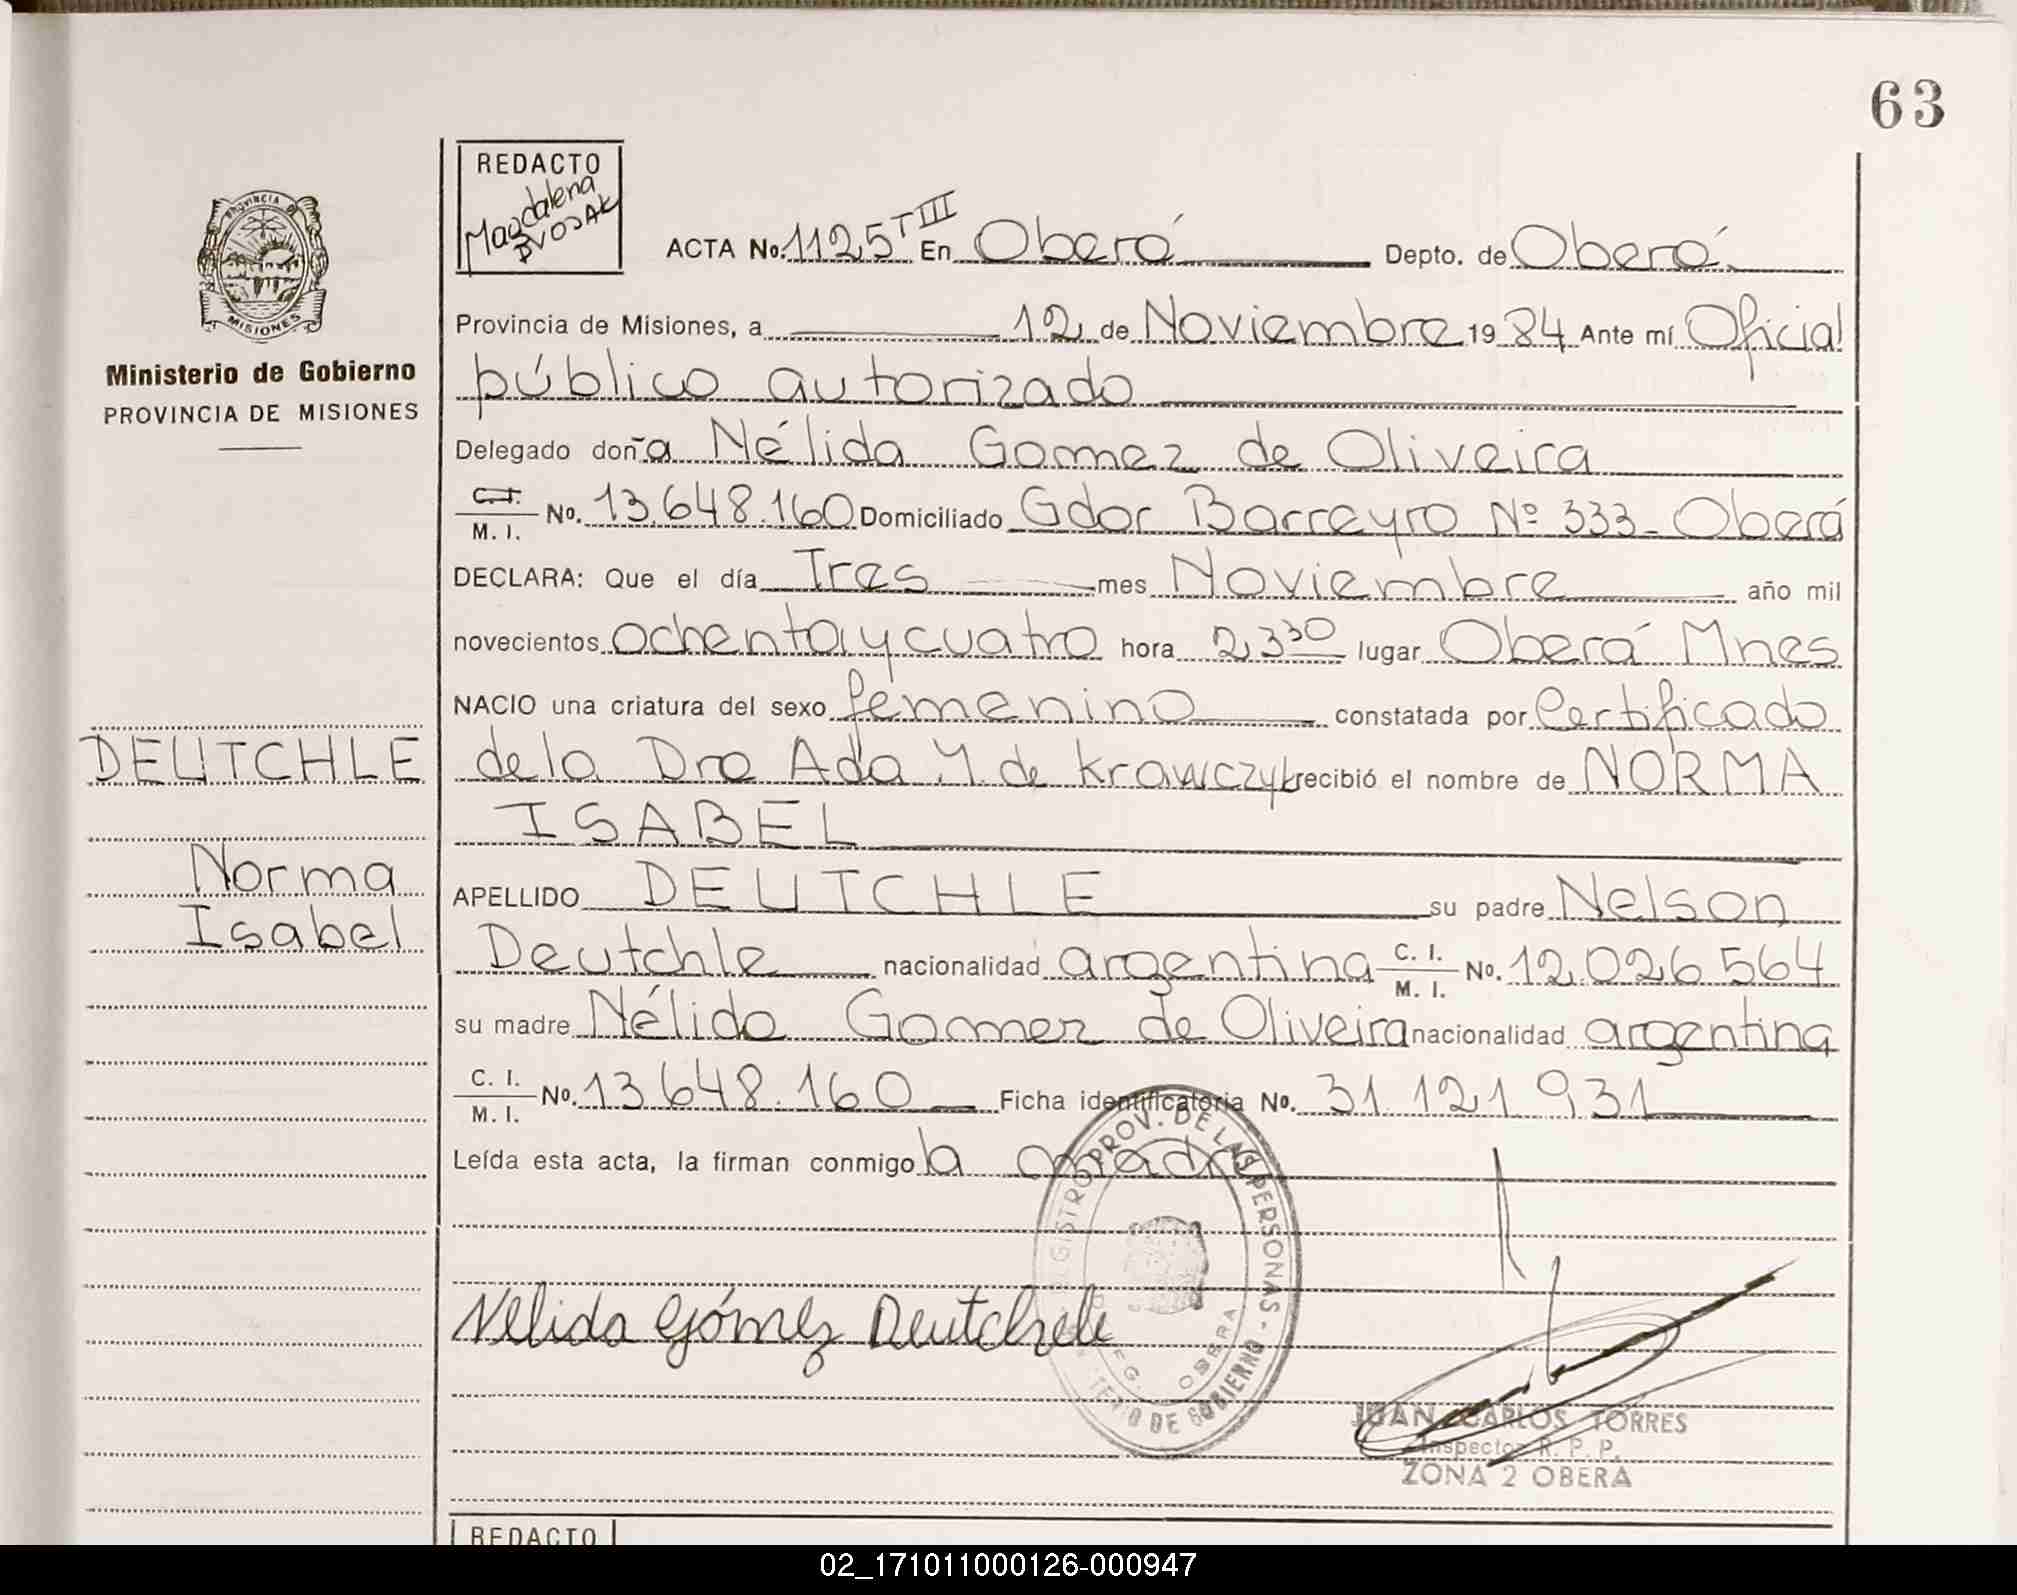 63
REDACTO
Magdalena
ACTA No. 1125 T III En Oberá Depto. de Oberá
PROVINCIA DE
MISIONES
Provincia de Misiones, a 12 de Noviembre 1984 Ante mí Oficial
público autorizado
Ministerio de Gobierno
PROVINCIA DE MISIONES
Delegado doña Nélida Gomez de Oliveira
C. I.
M. I. No. 13.648.160 Domiciliado Gdor Barreyro Nº 333 - Oberá
DECLARA: Que el día Tres mes Noviembre año mil
novecientos ochenta y cuatro hora 23 30 lugar Oberá Mnes
NACIO una criatura del sexo femenino constatada por Certificado
de la Dra Ada Y. de Krawczyk recibió el nombre de NORMA
ISABEL
DEUTCHLE
Norma
Isabel
APELLIDO DEUTCHLE su padre Nelson
Deutchle nacionalidad argentina C. I. M. I. No. 12.026.564
su madre Nélida Gomez de Oliveira nacionalidad argentina
C. I. M. I. No. 13.648.160 Ficha identificatoria No. 31.121.931
Leída esta acta, la firman conmigo la madre
REGISTRO PROV. DE LAS PERSONAS - MINISTERIO DE GOBIERNO
OBERA
Nélida Gómez Deutchele
JUAN CARLOS TORRES
Inspector R. P. P.
ZONA 2 OBERA
REDACTO
02_171011000126-000947